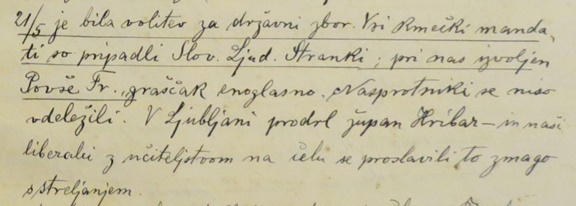 21/5 je bila volitev za državni zbor. Vsi kmečki manda-
ti so pripadli Slov. Ljud. Stranki; pri nas izvoljen
Povše Fr., graščak enoglasno. Nasprotniki se niso
vdeležili. V Ljubljani prodrl župan Hribar – in naši
liberalci z učiteljstvom na čelu so proslavili to zmago
s streljanjem.